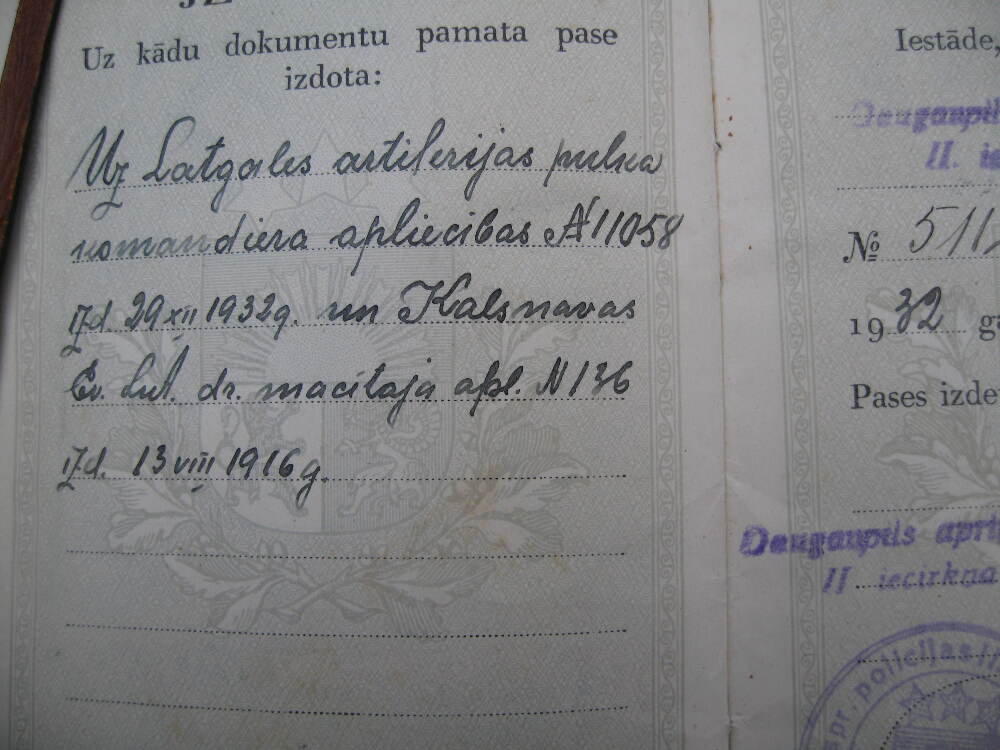 Uz kādu dokumentu pamata pase
izdota:
Uz Latgales artilerijas pulka
komandiera apliecības № 11058
izd. 29 XII 1932 g. un Kalsnavas
Ev. Lut. dr. macītaja apl. N 136
izd. 13 VIII 1916 g.
Iestāde,
Daugavpils
II.
№ 511
1932 g
Pases izde
Daugavpils apri
II iecirkņa
apr. policijas